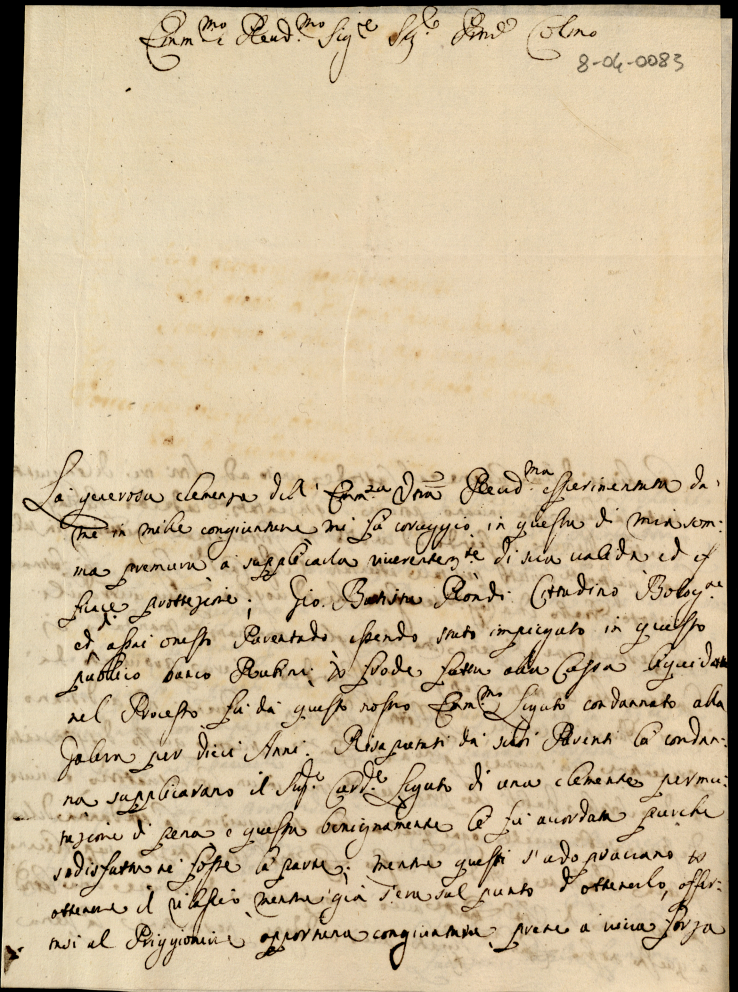 Emm.mo e Reud.mo Sig.e Sig.e Prnē Colmo
8-04-0083
La generosa clemenza dell' Emm.za Vra Reud.ma esperimentata da
me in mille congiunture mi fà coraggio in questa di mia som:
ma premura à supplicarla riverentem.te di sua valida ed ef
ficace prottezione; Gio. Battista Rondi Cittadino Bologn.e
ed assai onesto Parentado essendo stato impiegato in questo
publico banco Rubini; p frode fatta alla Cassa liquidata
nel Processo fù da questo nostro Emm.mo Legato condannato alla
Galera per dieci Anni. Risaputasi da suoi Parenti la condan:
na supplicarano il Sig.e Card.e Legato di una clemente permu:
tazione di pena e questa benignamente le fù acordata purche
sodisfatta ne fosse la parte; mentre questi s'adopraciano p
ottenere il rilascio mentre già s'era sul punto d'ottenerlo, offer:
tasi al Priggioniere opportuna congiuntura, prese a viva forza